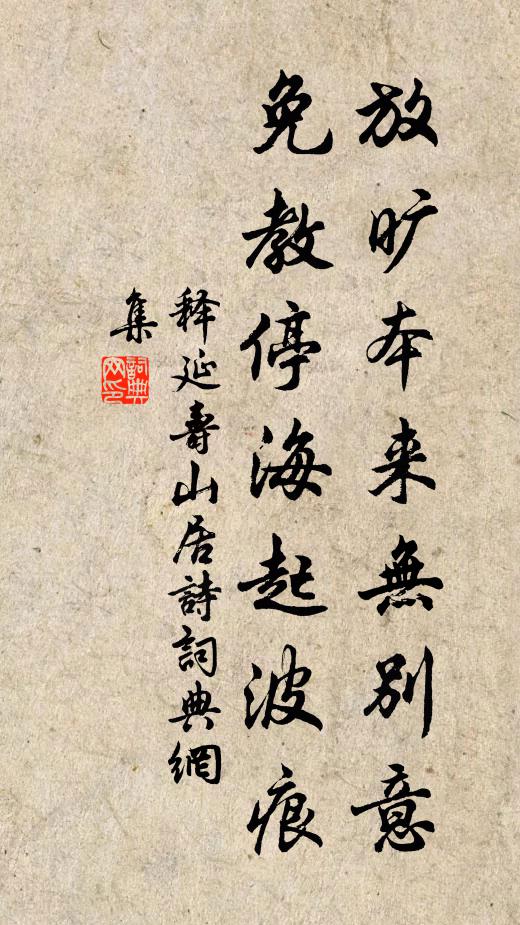 放旷本来無别意
免教停海起波痕
释延壽山居詩詞典網
集
詞典
网印